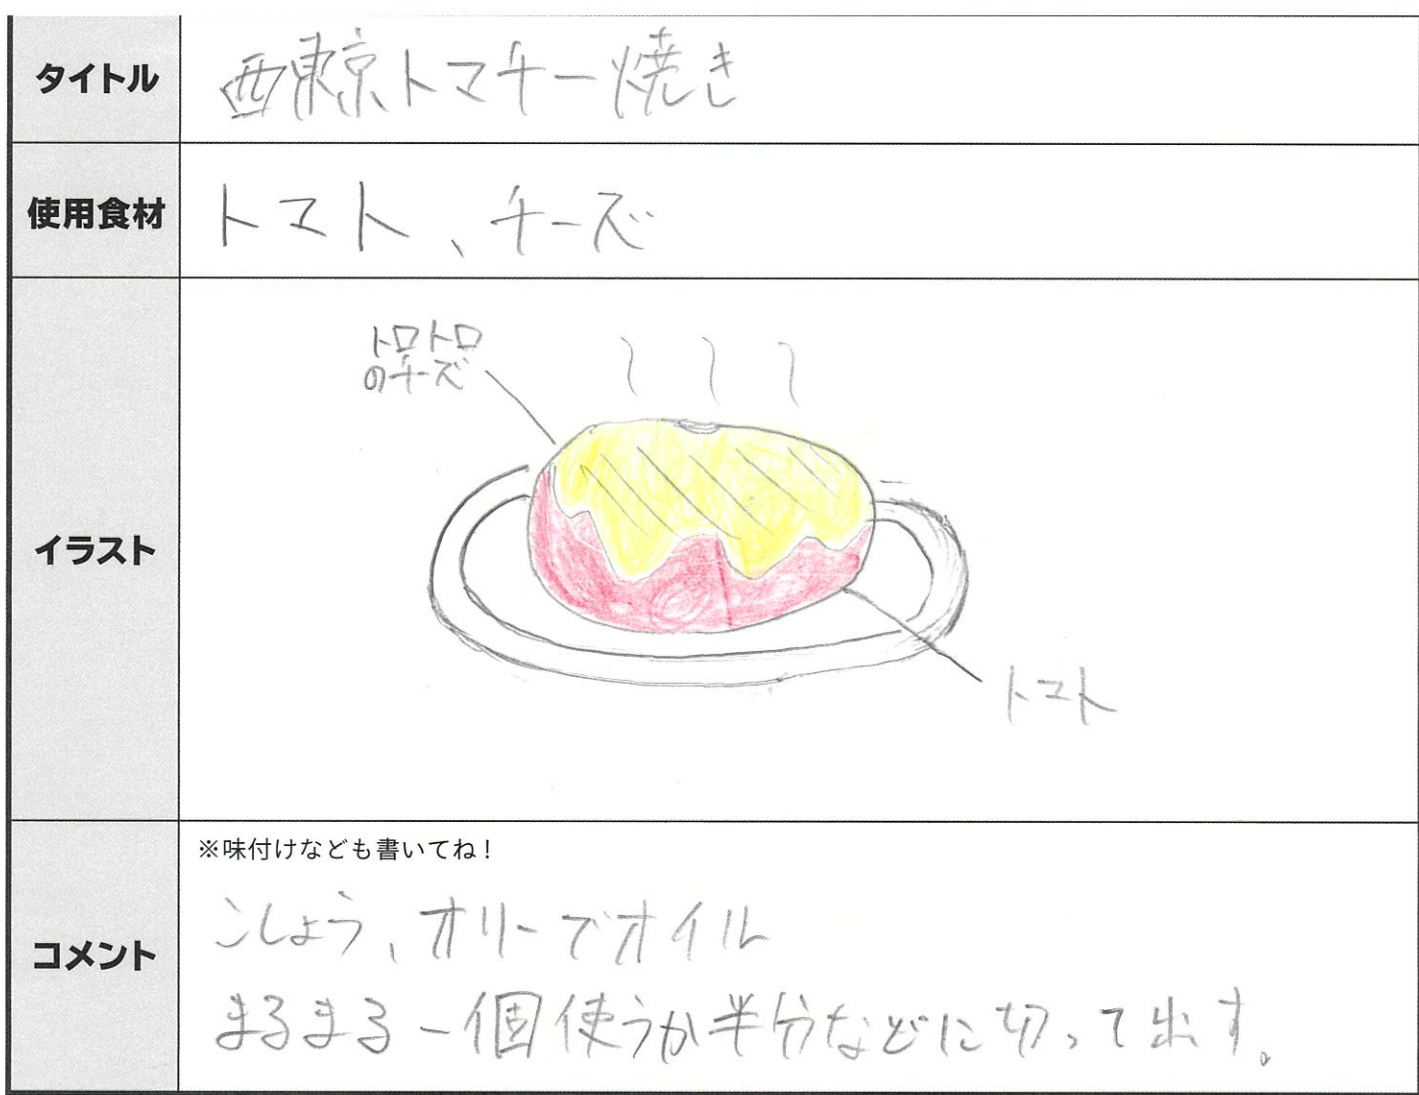 タイトル
西東京トマチー焼き
使用食材
トマト、チーズ
イラスト
トロトロ
のチーズ
トマト
コメント
※味付けなども書いてね!
こしょう、オリーブオイル
まるまる一個使うか半分などに切って出す。